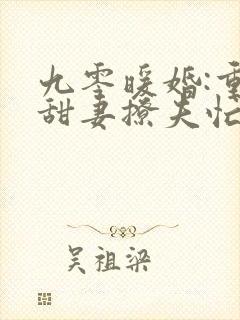 九零暖婚:重
甜妻撩夫忙
吴祖梁